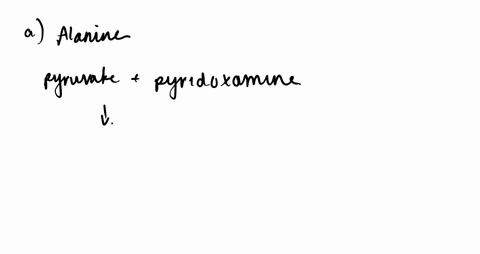 a) Alanine
pyruvate + pyridoxamine
↓